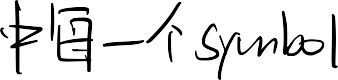 中国一个symbol